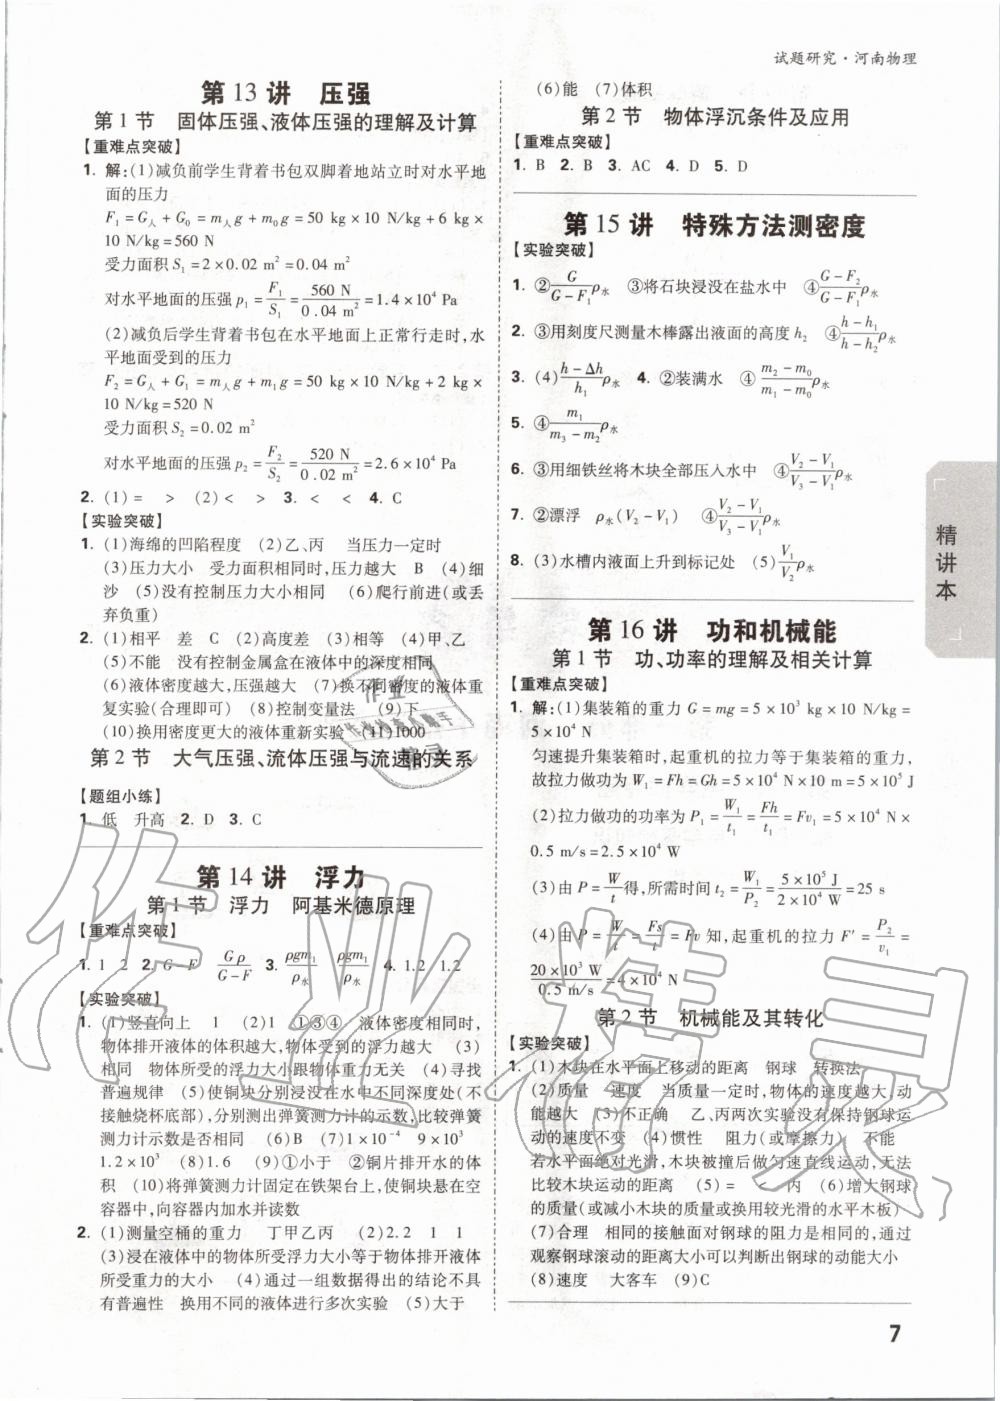 试题研究·河南物理
第13讲 压强
第1节 固体压强、液体压强的理解及计算
【重难点突破】
1. 解:(1)减负前学生背着书包双脚着地站立时对水平地
面的压力
F₁=G人+G₀=m人g+m₀g=50 kg×10 N/kg+6 kg×
10 N/kg=560 N
受力面积S₁=2×0.02 m²=0.04 m²
对水平地面的压强p₁=F₁/S₁=560 N/0.04 m²=1.4×10⁴ Pa
(2)减负后学生背着书包在水平地面上正常行走时,水
平地面受到的压力
F₂=G人+G₁=m人g+m₁g=50 kg×10 N/kg+2 kg×
10 N/kg=520 N
受力面积S₂=0.02 m²
对水平地面的压强p₂=F₂/S₂=520 N/0.02 m²=2.6×10⁴ Pa
2. (1)= > (2)< > 3. < < 4. C
【实验突破】
1. (1)海绵的凹陷程度 (2)乙、丙 当压力一定时
(3)压力大小 受力面积相同时,压力越大 B (4)细
沙 (5)没有控制压力大小相同 (6)爬行前进(或丢
弃负重)
2. (1)相平 差 C (2)高度差 (3)相等 (4)甲、乙
(5)不能 没有控制金属盒在液体中的深度相同
(6)液体密度越大,压强越大 (7)换不同密度的液体重
复实验(合理即可) (8)控制变量法 (9)下
(10)换用密度更大的液体重新实验 (11)1000
第2节 大气压强、流体压强与流速的关系
【题组小练】
1. 低 升高 2. D 3. C
第14讲 浮力
第1节 浮力 阿基米德原理
【重难点突破】
1. 1 2 2. G-F Gρ/(G-F) 3. ρgm₁/ρ水 ρgm₁/ρ水 4. 1.2 1.2
【实验突破】
1. (1)竖直向上 1 (2)1 ①③④ 液体密度相同时,
物体排开液体的体积越大,物体受到的浮力越大 (3)
相同 物体所受的浮力大小跟物体重力无关 (4)寻找
普遍规律 (5)使铜块分别浸没在水中不同深度处(不
接触烧杯底部),分别测出弹簧测力计的示数,比较弹簧
测力计示数是否相同 (6)B (7)1×10⁻⁴ 9×10³
1.2×10³ (8)1.6 (9)①小于 ②铜片排开水的体
积 (10)将弹簧测力计固定在铁架台上,使铜块悬在空
容器中,向容器内加水并读数
2. (1)测量空桶的重力 丁甲乙丙 (2)2.2 1 1
(3)浸在液体中的物体所受浮力大小等于物体排开液体
所受重力的大小 (4)通过一组数据得出的结论不具
有普遍性 换用不同的液体进行多次实验 (5)大于
(6)能 (7)体积
第2节 物体浮沉条件及应用
【重难点突破】
1. B 2. B 3. AC 4. D 5. D
第15讲 特殊方法测密度
【实验突破】
1. ②G/(G-F₁)ρ水 ③将石块浸没在盐水中 ④(G-F₂)/(G-F₁)ρ水
2. ③用刻度尺测量木棒露出液面的高度h₂ ④(h-h₁)/(h-h₂)ρ水
3. (4)(h-Δh)/h₁ρ水 4. ②装满水 ④(m₂-m₀)/(m₁-m₀)ρ水
5. ④m₁/(m₃-m₂)ρ水
6. ③用细铁丝将木块全部压入水中 ④(V₂-V₁)/(V₃-V₁)ρ水
7. ②漂浮 ρ水(V₂-V₁) ④(V₂-V₁)/(V₃-V₁)ρ水
8. (3)水槽内液面上升到标记处 (5)V₁/V₂ρ水
第16讲 功和机械能
第1节 功、功率的理解及相关计算
【重难点突破】
1. 解:(1)集装箱的重力G=mg=5×10³ kg×10 N/kg=
5×10⁴ N
匀速提升集装箱时,起重机的拉力等于集装箱的重力,
故拉力做功为W₁=Fh=Gh=5×10⁴ N×10 m=5×10⁵ J
(2)拉力做功的功率为P₁=W₁/t₁=Fh/t₁=Fv₁=5×10⁴ N×
0.5 m/s=2.5×10⁴ W
(3)由P=W/t得,所需时间t₂=W₁/P₂=5×10⁵ J/2×10⁴ W=25 s
(4)由P=W/t=Fs/t=Fv知,起重机的拉力F′=P₂/v₁=
20×10³ W/0.5 m/s=4×10⁴ N
第2节 机械能及其转化
【实验突破】
1. (1)木块在水平面上移动的距离 钢球 转换法
(2)质量 速度 当质量一定时,物体的速度越大,动
能越大 (3)不正确 乙、丙两次实验没有保持钢球运
动的速度不变 (4)惯性 阻力(或摩擦力) 不能
若水平面绝对光滑,木块被撞后做匀速直线运动,无法
比较木块运动的距离 (5)= < 丙 (6)增大钢球
的质量(或减小木块的质量或换用较光滑的水平木板)
(7)合理 相同的接触面对钢球的阻力相同,故可通过
观察钢球滚动的距离大小可以判断出钢球的动能大小
(8)速度 大客车 (9)C
精讲本
7
作业精灵